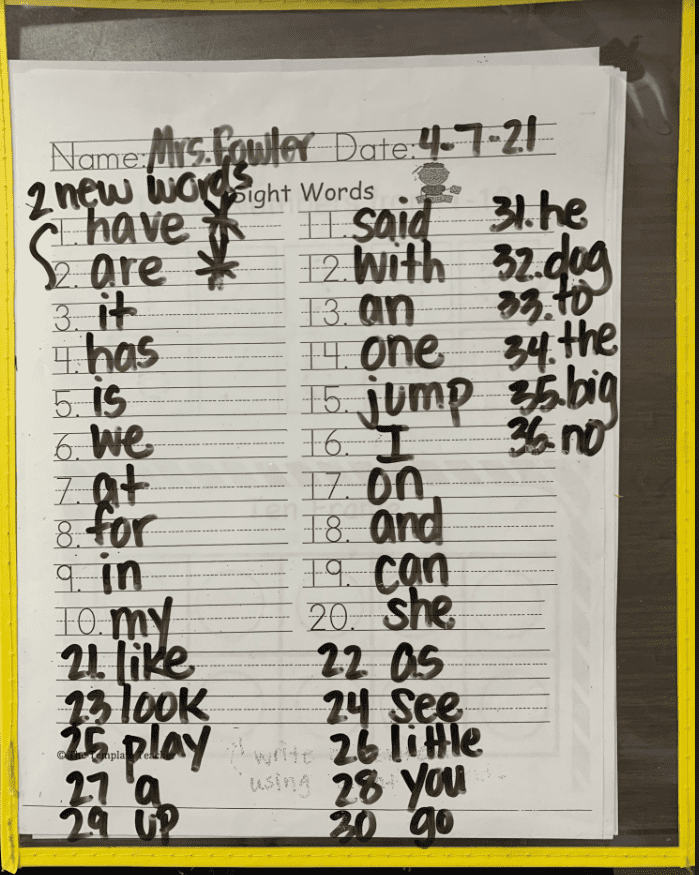 Name: Mrs. Fowler Date: 4-7-21
2 new words Sight Words
1. have 11. said 31. he
2. are 12. with 32. dog
3. it 13. an 33. to
4. has 14. one 34. the
5. is 15. jump 35. big
6. we 16. I 36. no
7. at 17. on
8. for 18. and
9. in 19. can
10. my 20. she
21. like 22 as
23 look 24 see
25 play 26 little
© The Template Teacher write
using
27 a 28 you
29 up 30 go